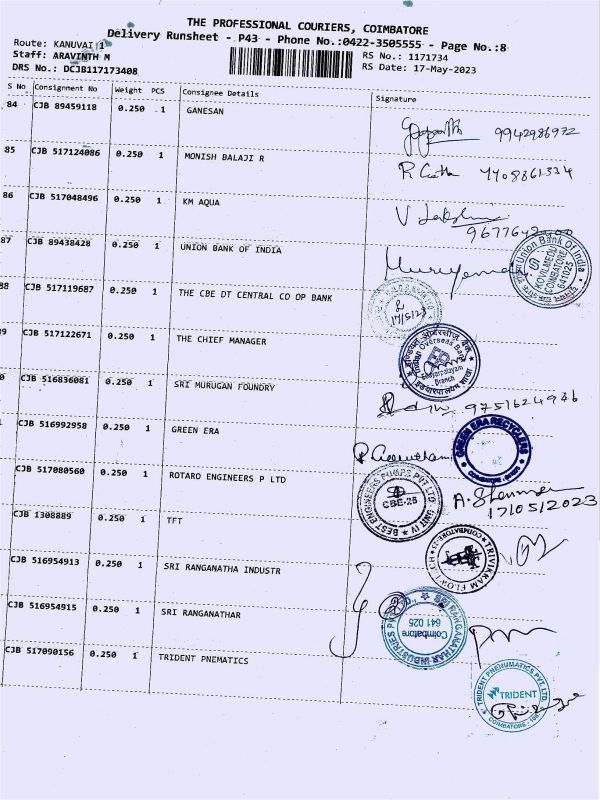 THE PROFESSIONAL COURIERS, COIMBATORE
Delivery Runsheet - P43 - Phone No.:0422-3505555 - Page No.:8
Route: KANUVAI 1
Staff: ARAVINTH M
DRS No.: DCJB117173408
RS No.: 1171734
RS Date: 17-May-2023
S No Consignment No Weight PCS Consignee Details Signature
84 CJB 89459118 0.250 1 GANESAN
9942986972
85 CJB 517124086 0.250 1 MONISH BALAJI R
7708861334
86 CJB 517048496 0.250 1 KM AQUA
87 CJB 89438428 0.250 1 UNION BANK OF INDIA
Union Bank Of India
KOVILMEDU
COIMBATORE
641025
88 CJB 517119687 0.250 1 THE CBE DT CENTRAL CO OP BANK
17/5/23
CJB 517122671 0.250 1 THE CHIEF MANAGER
Indian Overseas Bank
Branch
CJB 516836081 0.250 1 SRI MURUGAN FOUNDRY
9751624946
CJB 516992958 0.250 1 GREEN ERA
GREEN ERA RECYCLERS
CJB 517080560 0.250 1 ROTARO ENGINEERS P LTD
BEST ENGINEERS PUMPS PVT LTD. UNIT IV
CBE-25
17/05/2023
CJB 1308889 0.250 1 TFT
TRIVIKRAM FLOW
CJB 516954913 0.250 1 SRI RANGANATHA INDUSTR
CJB 516954915 0.250 1 SRI RANGANATHAR
SRI RANGANATHAR INDUSTRIES
Coimbatore
641 025
CJB 517090156 0.250 1 TRIDENT PNEMATICS
TRIDENT PNEUMATICS PVT. LTD.
TRIDENT